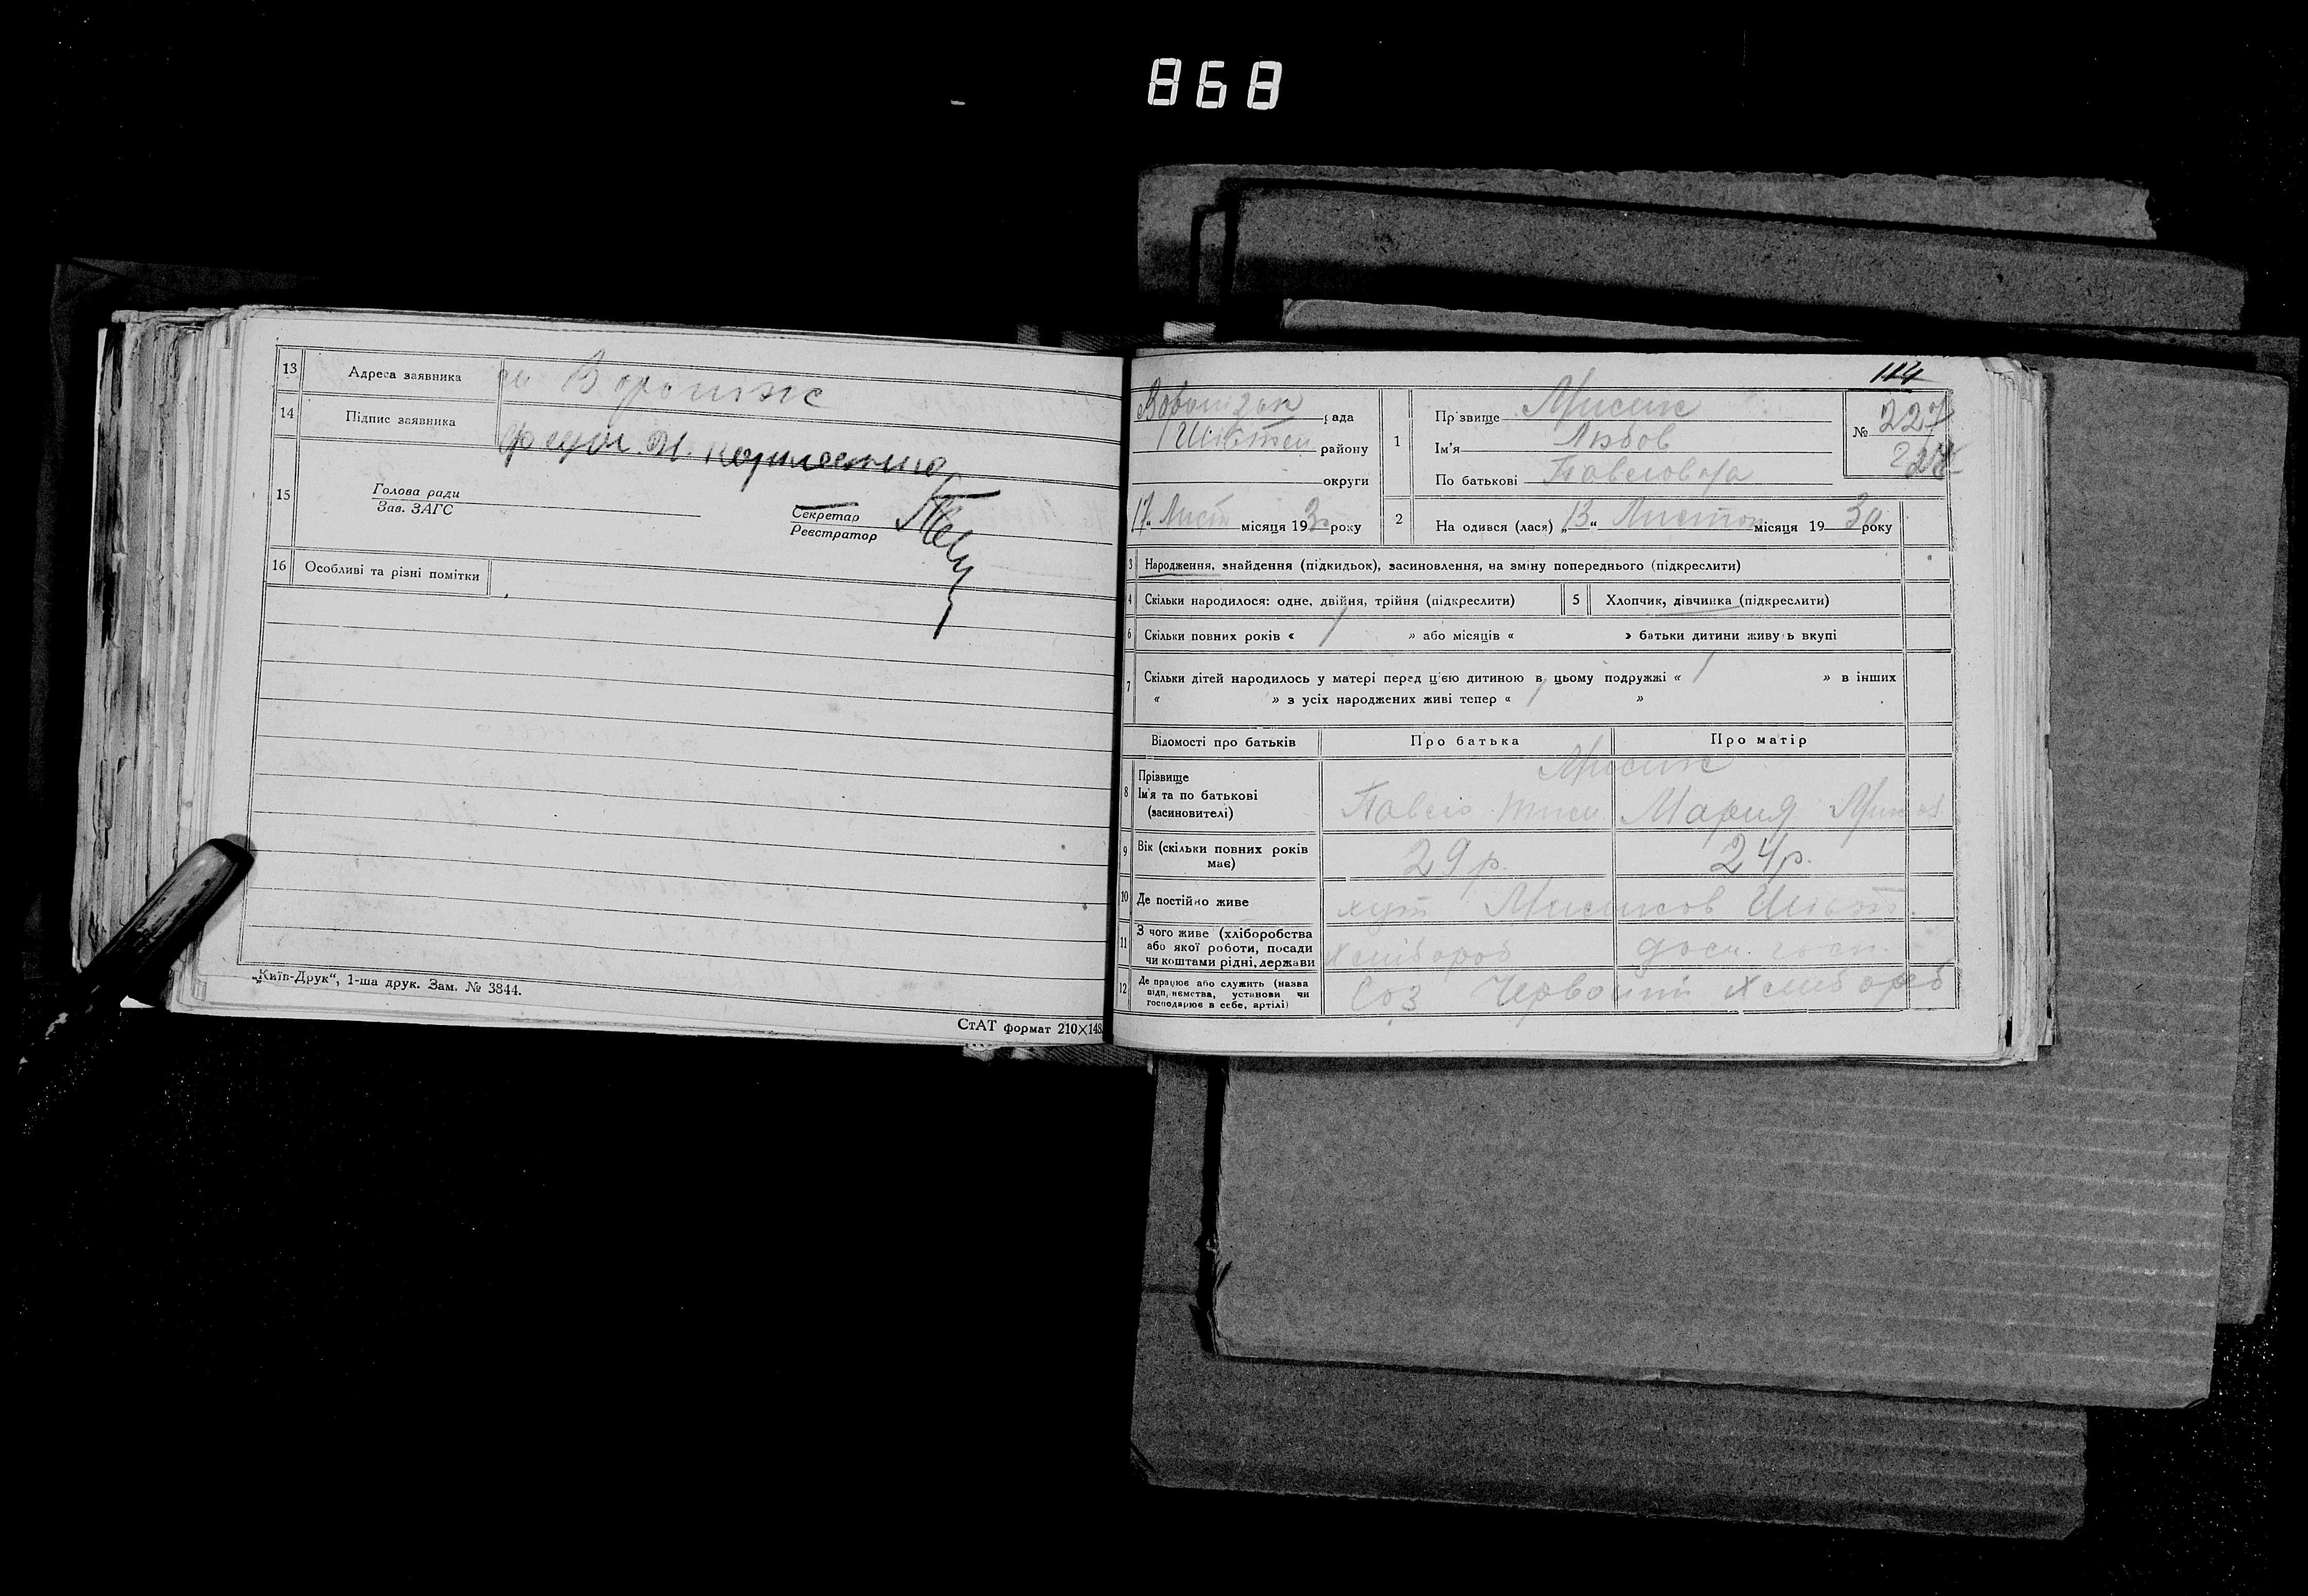 868
13 Адреса заявника см Вороніжс
14 Підпис заявника
15 Голова ради
Зав. ЗАГС
Секретар
Реєстратор
16 Особливі та різні помітки
„Київ-Друк“, 1-ша друк. Зам. № 3844.
СтАТ формат 210×148.
114
рада
району
округи
17 „ Лист місяця 1930 року
1 Прізвище Мисик
Ім'я Любов
По батькові Павловна
№ 227
2 На одився (лася) „13“ Листоп місяця 1930 року
3 Народження, знайдення (підкидьок), засиновлення, на зміну попереднього (підкреслити)
4 Скільки народилося: одне, двійня, трійня (підкреслити)
5 Хлопчик, дівчинка (підкреслити)
6 Скільки повних років « 1 » або місяців « » батьки дитини живуть вкупі
7 Скільки дітей народилось у матері перед цією дитиною в цьому подружжі « 1 » в інших
« » з усіх народжених живі тепер « 1 »
Відомості про батьків Про батька Про матір
8 Прізвище Мисик
Ім'я та по батькові
(засиновителі)
Павло Мария
9 Вік (скільки повних років
має)
29 р. 24 р.
10 Де постійно живе хут Мисиков
11 З чого живе (хліборобства
або якої роботи, посади
чи коштами рідні, держави
Хлібороб дом. госп
12 Де працює або служить (назва
підприємства, установи чи
господарює в себе, артілі)
Соз Червоний Хлібороб